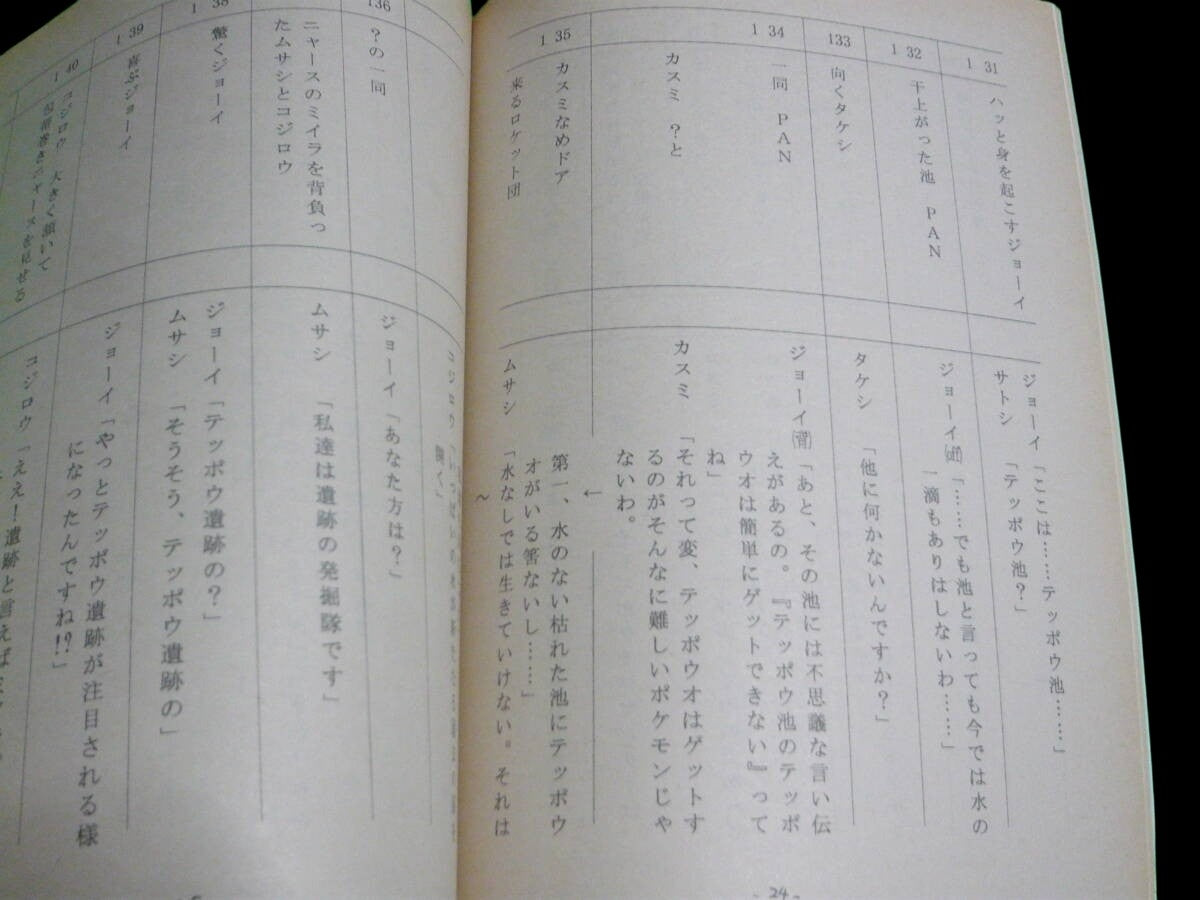 131
ハッと身を起こすジョーイ
ジョーイ「ここは……テッポウ池……」
サトシ「テッポウ池?」
132
干上がった池 PAN
ジョーイ(off)「……でも池と言っても今では水の
一滴もありはしないわ……」
133
向くタケシ
タケシ「他に何かないんですか?」
134
一同 PAN
ジョーイ(背)「あと、その池には不思議な言い伝
えがあるの。『テッポウ池のテッポ
ウオは簡単にゲットできない』って
ね」
カスミ ?と
カスミ「それって変、テッポウオはゲットす
るのがそんなに難しいポケモンじゃ
ないわ。
←
135
カスミなめドア
第一、水のない枯れた池にテッポウ
オがいる筈ないし……」
来るロケット団
ムサシ「水なしでは生きていけない。それは
〜
- 24 -
聞く」
136
?の一同
ジョーイ「あなた方は?」
ニャースのミイラを背負っ
たムサシとコジロウ
ムサシ「私達は遺跡の発掘隊です」
138
驚くジョーイ
ジョーイ「テッポウ遺跡の?」
ムサシ「そうそう、テッポウ遺跡の」
139
喜ぶジョーイ
ジョーイ「やっとテッポウ遺跡が注目される様
になったんですね!?」
140
コジロウ 大きく頷いて
包帯巻きニャースを見せる
コジロウ「ええ!遺跡と言えば